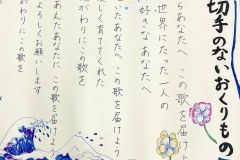 切手のないおくりもの
らあなたへ この歌を届けよう
世界にたった人の
好きな あなたへ
いたあなたへ この歌を届けよう
しく育ててくれた
がわりに この歌を
あんたあなたに この歌を届けよう
よろしくお願いします
がわりに この歌を